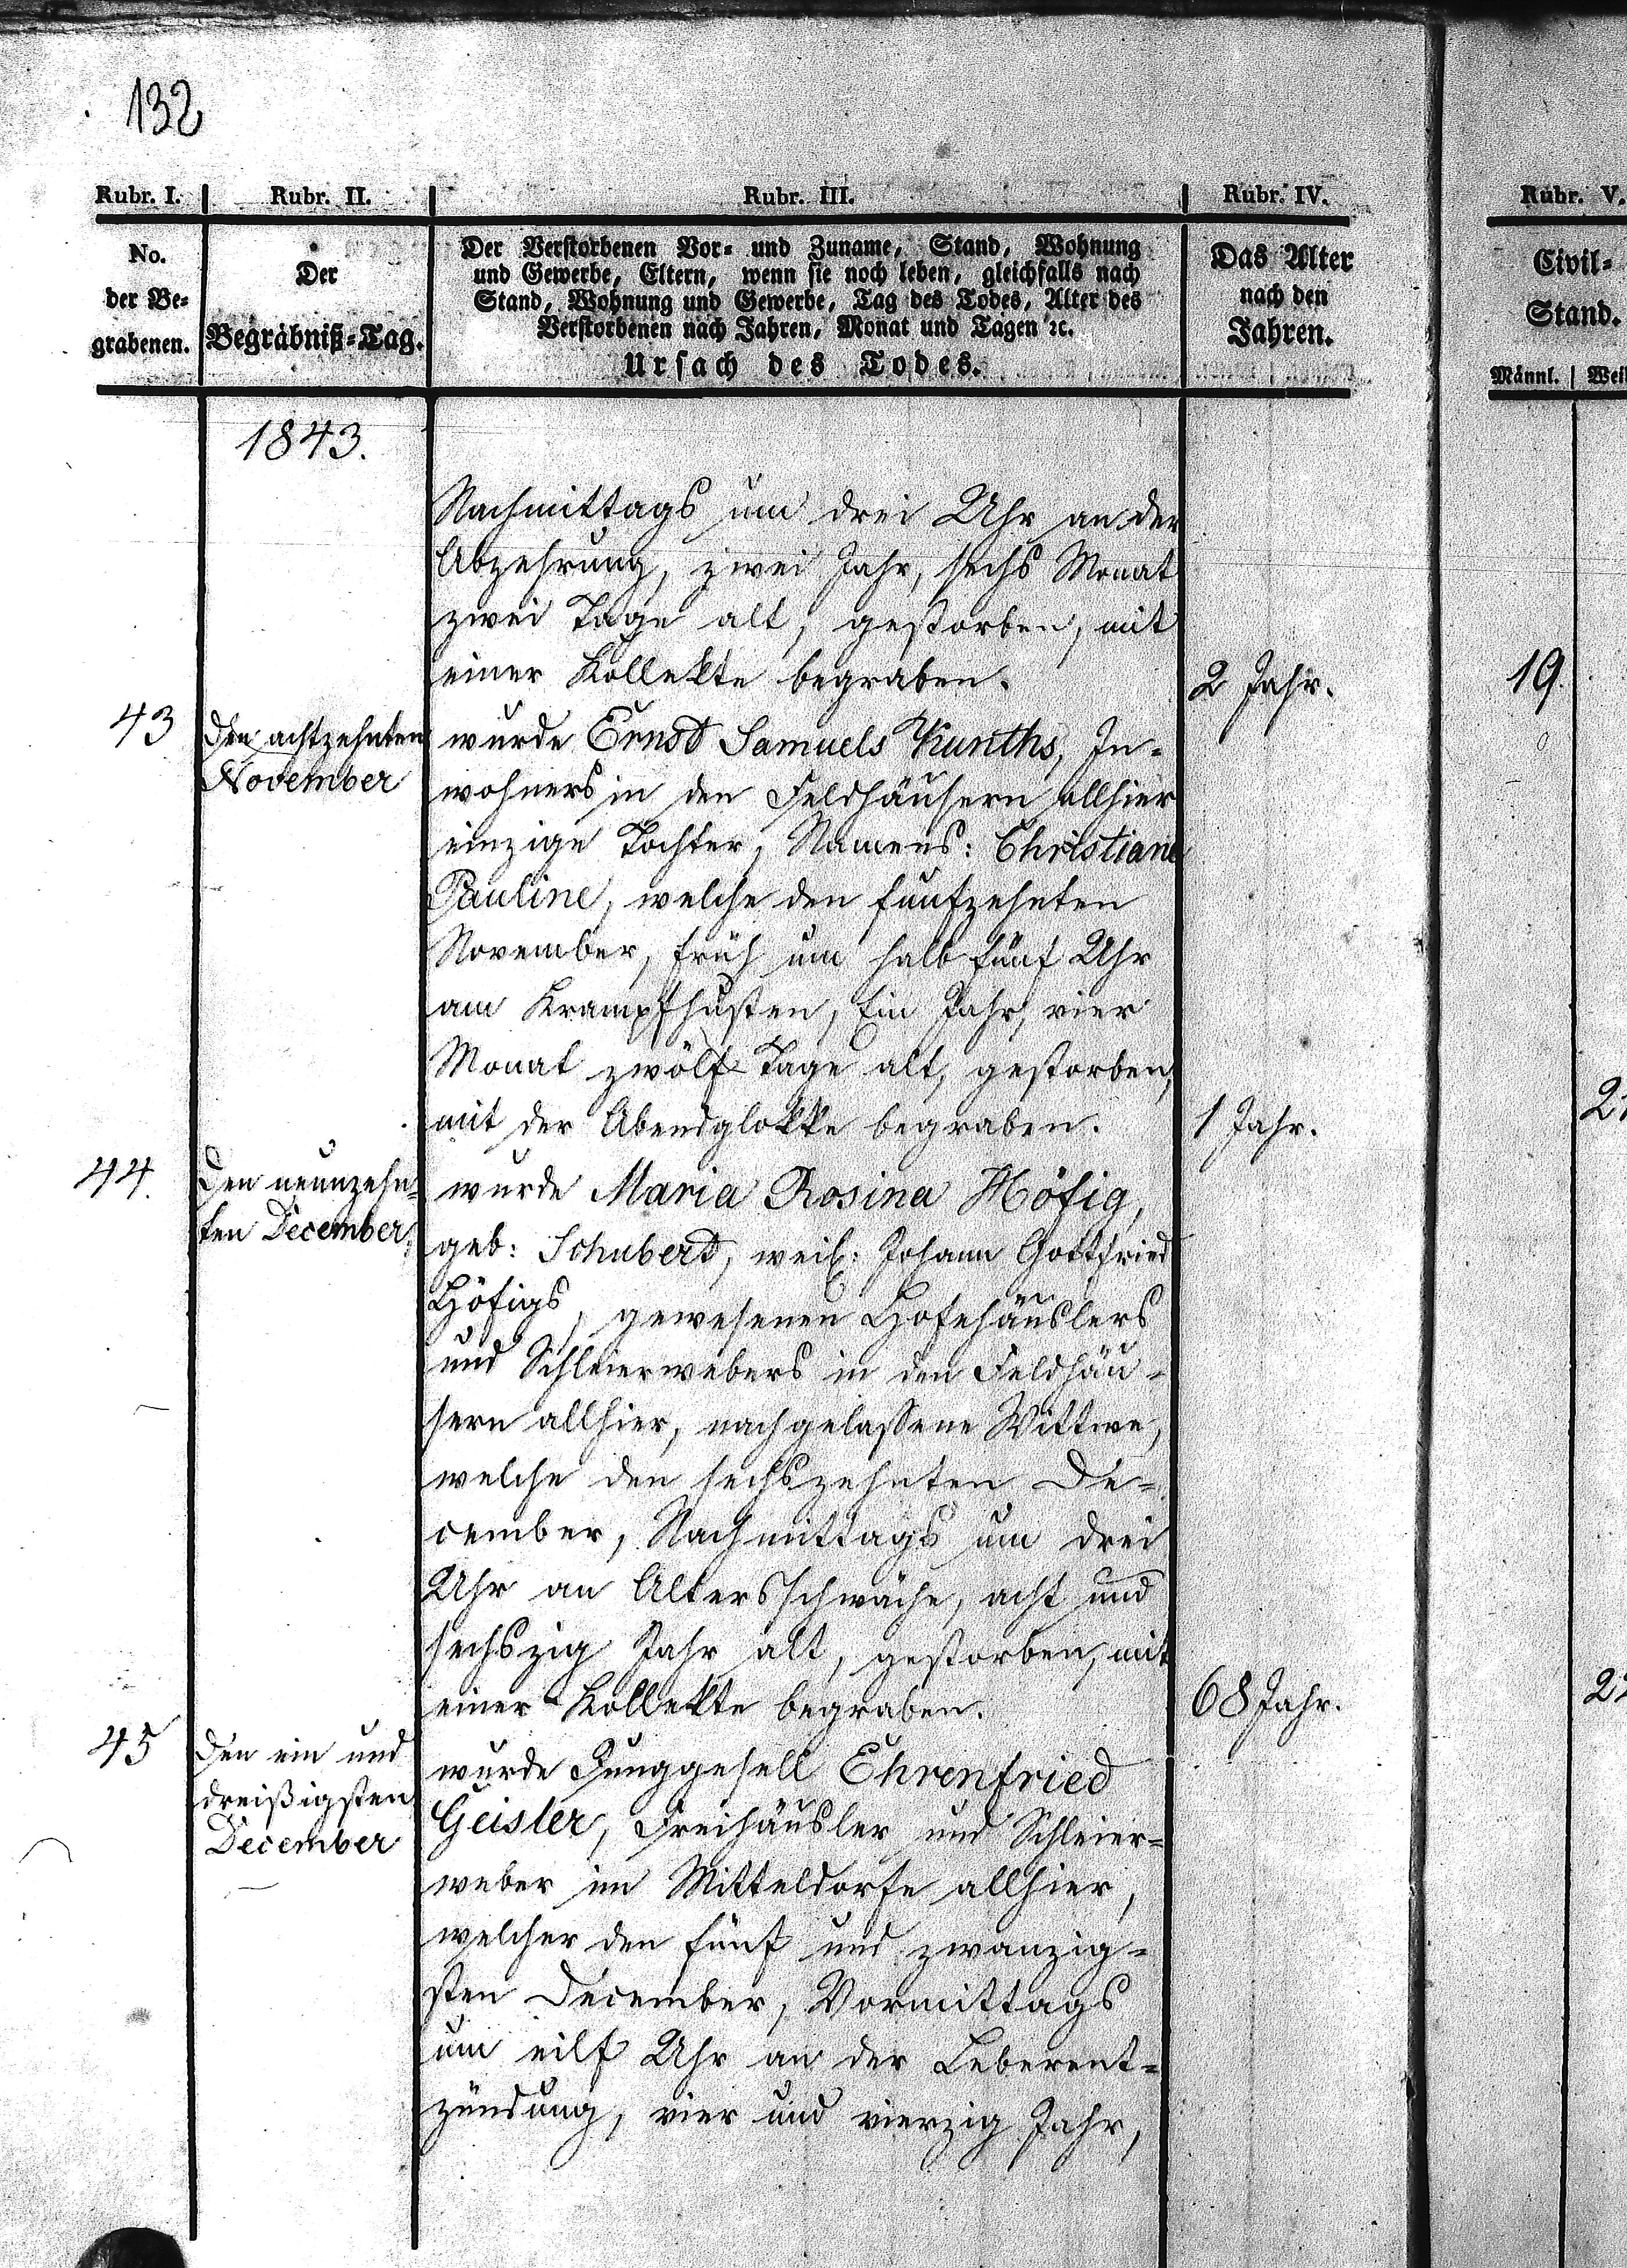 132
Rubr. I. Rubr. II. Rubr. III. Rubr. IV. Rubr. V.
No.
der Be-
grabenen.
Der
Begräbniß-Tag.
Der Verstorbenen Vor- und Zuname, Stand, Wohnung
und Gewerbe, Eltern, wenn sie noch leben, gleichfalls nach
Stand, Wohnung und Gewerbe, Tag des Todes, Alter des
Verstorbenen nach Jahren, Monat und Tagen ꝛc.
Ursach des Todes.
Das Alter
nach den
Jahren.
Civil-
Stand.
Männl. Weil
1843.
Nachmittags um drei Uhr an der
Abzehrung, zwei Jahr, sechs Monat
zwei Tage alt, gestorben, mit
einer Kollekte begraben.
2 Jahr.
19.
43
Den achtzehnten
November
wurde Ernst Samuels Kunths, In-
wohners in den Feldhäusern allhier
einzige Tochter, Namens: Christiane
Pauline, welche den funfzehnten
November, früh um halb fünf Uhr
am Krampfhusten, Ein Jahr, vier
Monat zwölf Tage alt, gestorben,
mit der Abendglokke begraben.
1 Jahr.
21
44.
Den neunzehn-
ten December.
wurde Maria Rosina Höfig,
geb: Schubert, weil: Johann Gottfried
Höfigs, gewesenen Hofehäuslers
und Schleierwebers in den Feldhäu-
sern allhier, nachgelassene Wittwe,
welche den sechszehnten De-
cember, Nachmittags um drei
Uhr an Altersschwäche, acht und
sechszig Jahr alt, gestorben, mit
einer Kollekte begraben.
68 Jahr.
22
45
Den ein und
dreißigsten
December
wurde Junggesell Ehrenfried
Geisler, Freihäusler und Schleier-
weber im Mitteldorfe allhier,
welcher den fünf und zwanzig-
sten December, Vormittags
um eilf Uhr an der Leberent-
zündung, vier und vierzig Jahr,